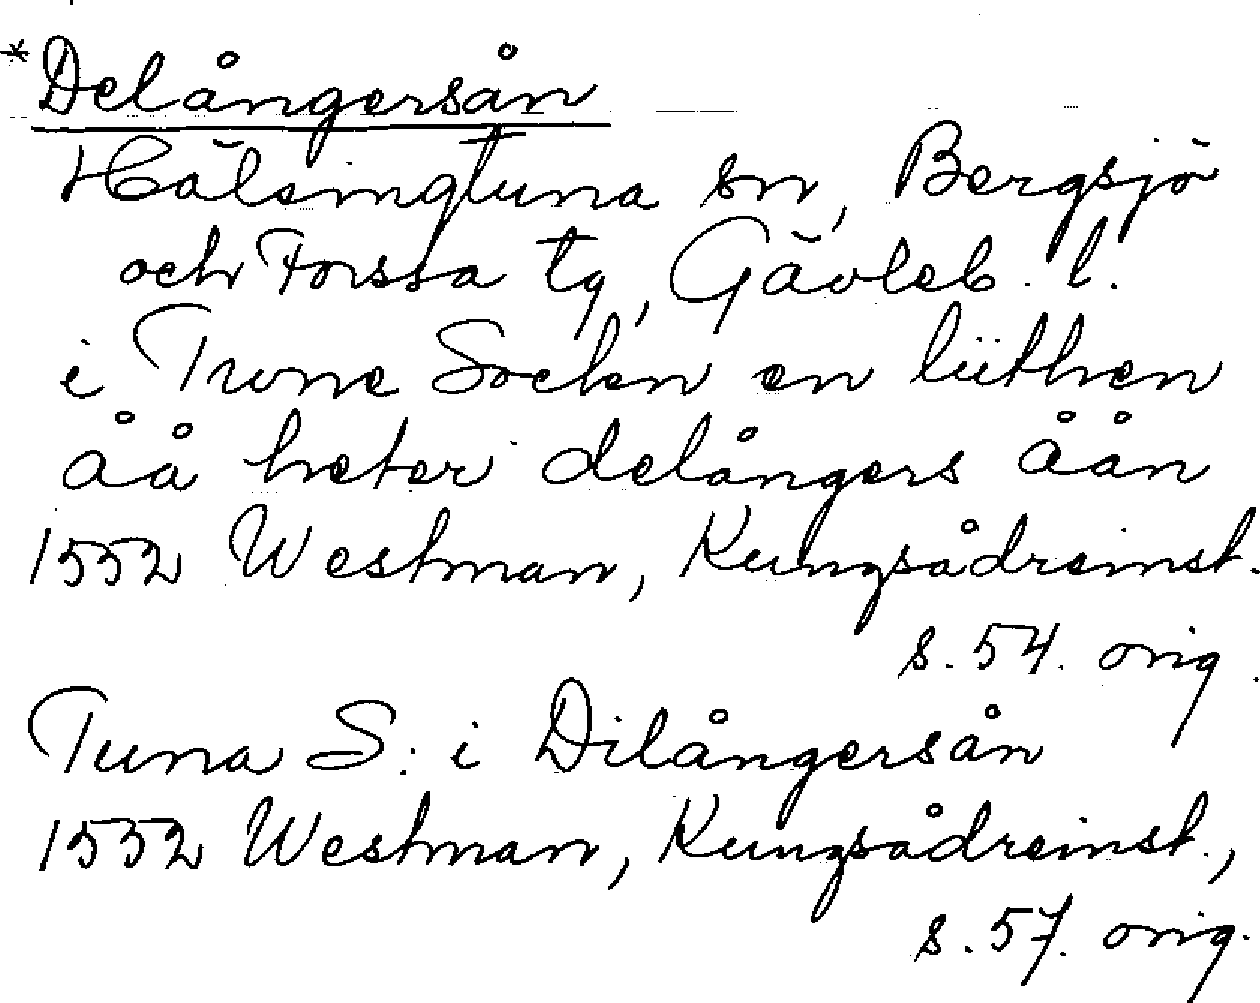 *Delångersån
Hälsingtuna sn, Bergsjö
och Forssa tg, Gävleb. l.
i Trone Socken en liithen
åå heter delångers åån
1552 Westman, Kungsådreinst.
s. 54. orig.
Tuna S: i Dilångersån
1552 Westman, Kungsådreinst.,
s. 57. orig.